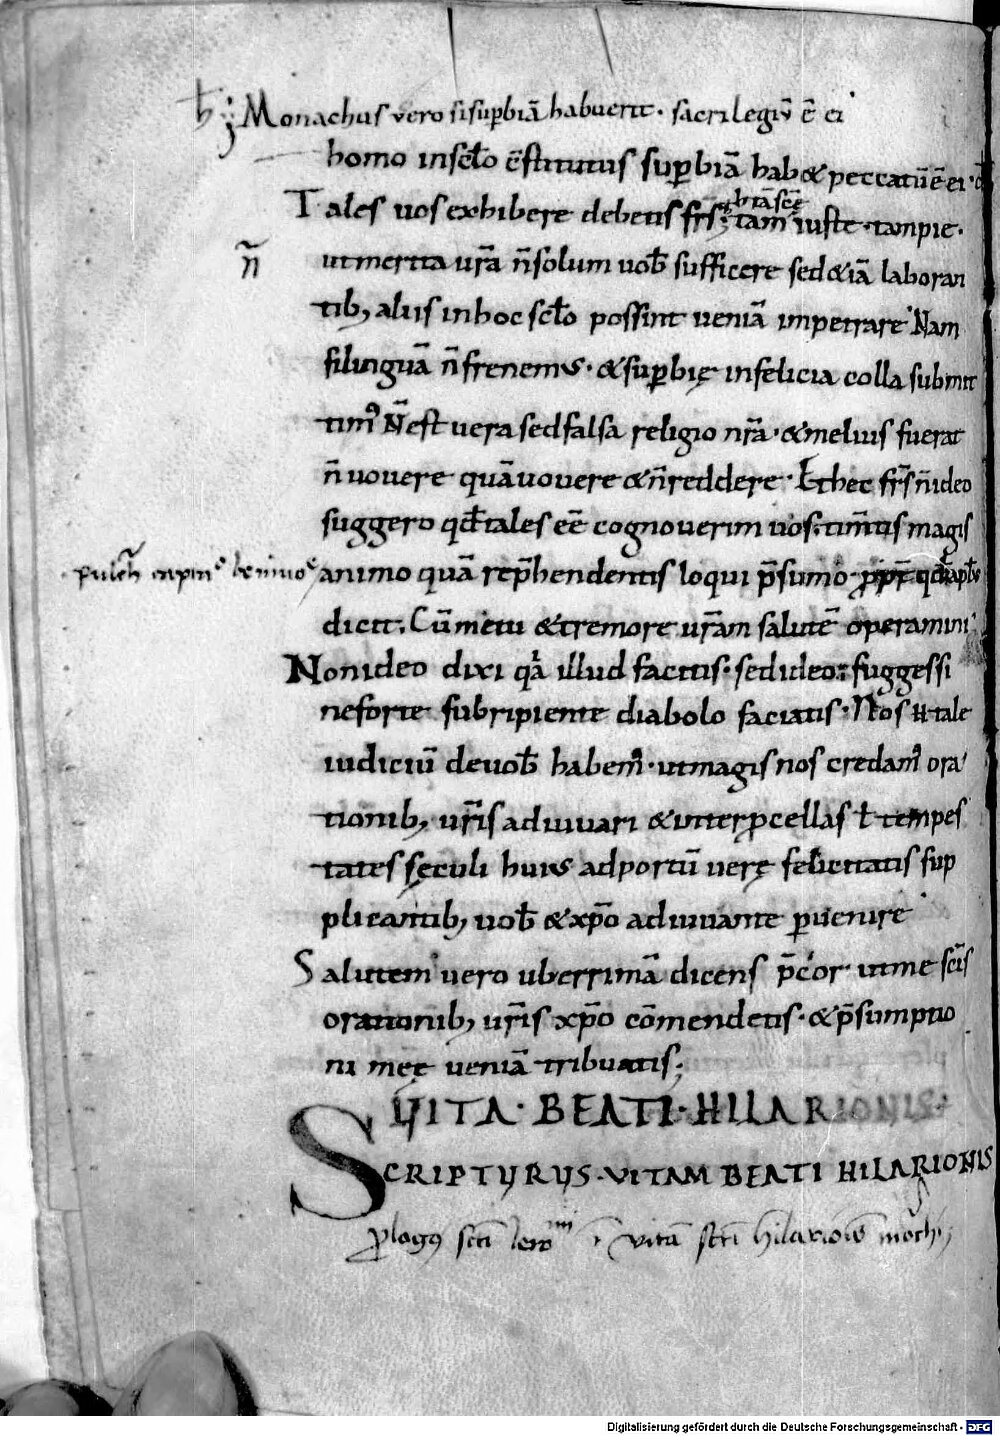 Monachus vero si supbiā habuerit. sacrilegiū ē ei
homo in sclo cstitutus supbiā hab& peccatū ē ei.
Tales uos exhibere debetis frs; tam iuste. tam pie.
n̄
ut merita ura n̄ solum uob sufficere sed &iā laboran
tib; aliis in hoc sclo possint ueniā impetrare. Nam
si linguā n̄ frenemus. & supbię infelicia colla submit
tim9 N̄ est uera sed falsa religio nr̄a. & melius fuerat
n̄ uouere quā uouere & n̄ reddere. Et hec frs n̄ ideo
suggero qd tales eē cognouerim uos. timtis magis
animo quā rep̄hendentis loqui p̄sumo. ppt qd apls
dicit. Cū metu & tremore ur̄am salutē operamini
Non ideo dixi qa illud facitis. sed ideo suggessi
ne forte subripiente diabolo faciatis. Nos H tale
iudiciū de uob habem9. ut magis nos credam9 ora
tionib; ur̄is adiuuari & inter pcellas l tempes
tates sęculi huius ad portū uerę felicitatis sup
plicantib; uob & xp̄o adiuuante puenire
Salutem uero uberrimā dicens p̄cor. ut me scis
orationib; ur̄is xp̄o cōmendetis. & p̄sumptio
ni meę ueniā tribuatis;
VITA. BEATI. HILARIONIS.
SCRIPTURUS. VITAM BEATI HILARIONIS
plogus scti Iero in vitā scti hilarionis mochi
Digitalisierung gefördert durch die Deutsche Forschungsgemeinschaft - DFG